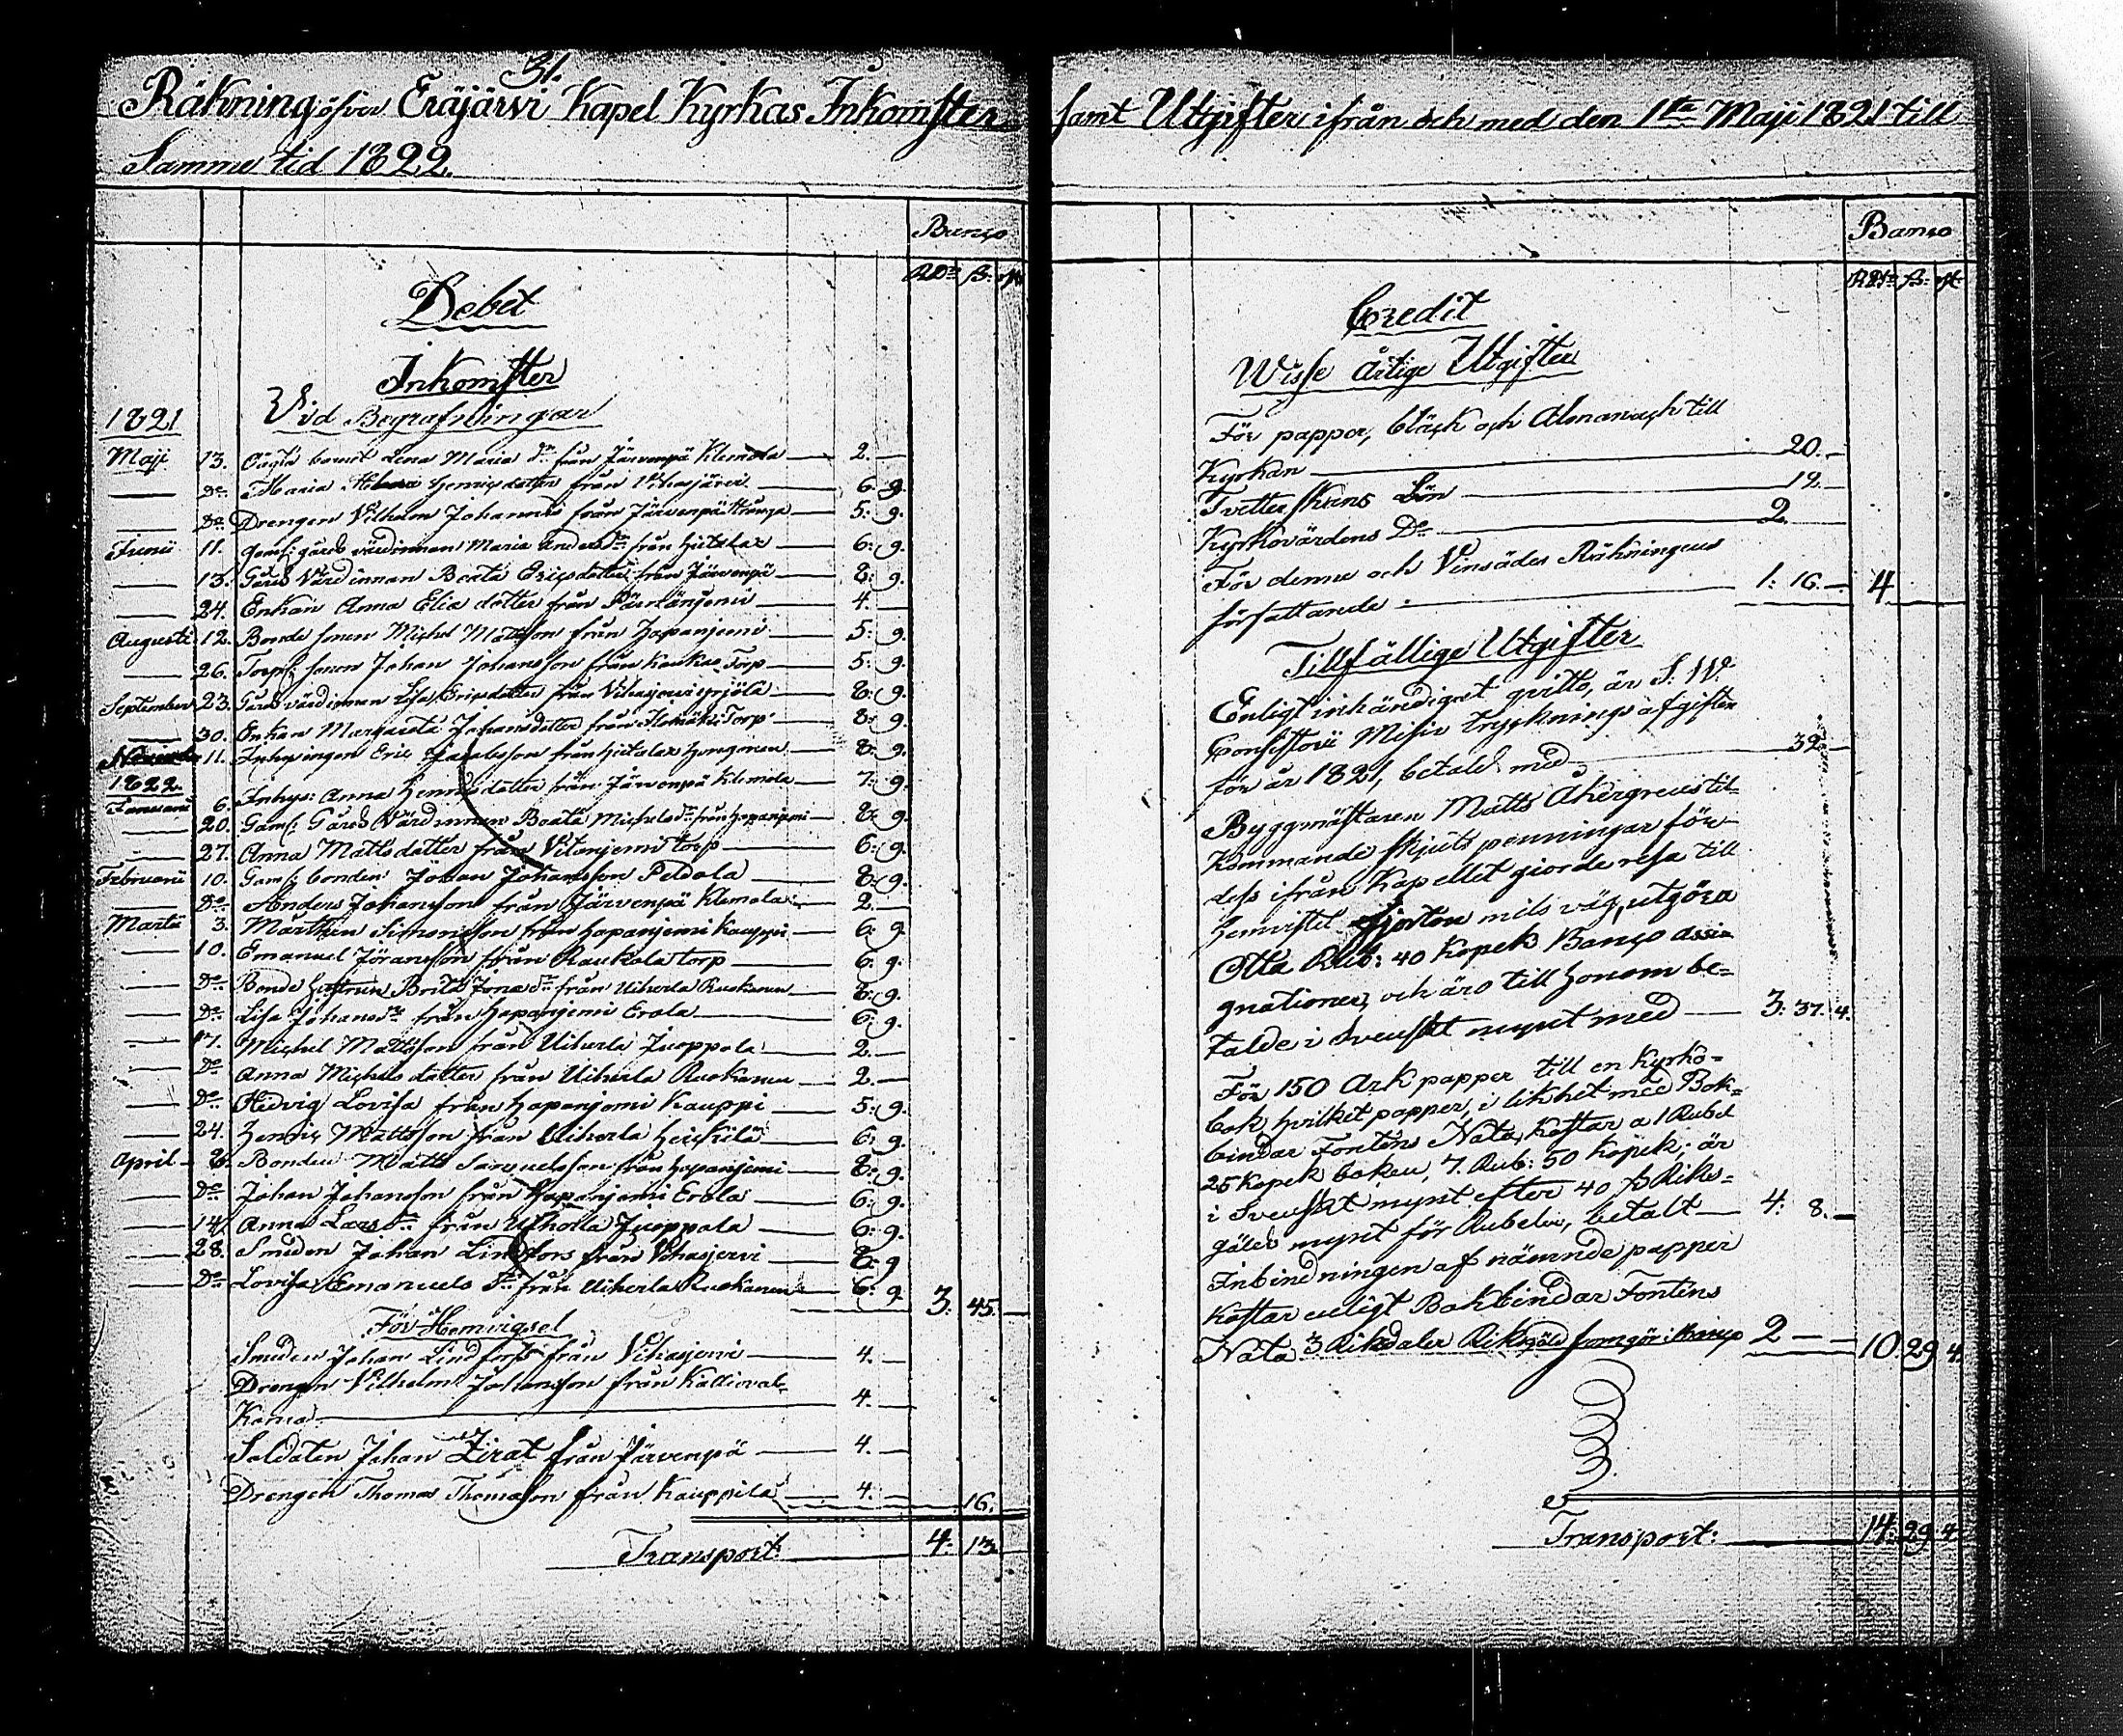 31.
Räkning öfver Eräjärvi Kapel Kyrkas Inkomster samt Utgifter ifrån och med den 1sta Maji 1821 till
Samme tid 1822.
Banco
RDr ß: rst
Debet
Inkomster
1821 Vid Begrafningar
Maji 13. Oägta barnet Lena Maria dr från Järvenpä Klemola 2. —
— Do Maria Henricsdotter från Vihasjärvi 6. 9.
— Do Drengen Vilhelm Johannis från Järvenpä 5: 9.
Junii 11. Gaml: gårds värdinnan Maria Anders dr från Hietalax 6: 9.
— 13. Gårds Värdinnan Beata Ericsdotter från Järvenpä 8: 9.
— 24. Enkan Anna Elia dotter från Pärnänjemi 4. —
Augusti 12. Bonde sonen Michel Mattsson från Hapanjemi 5: 9.
— 26. Torp: sonen Johan Johansson från Kaukas Torp 5: 9.
September 23. Gårds värdinnan Lisa Ericsdotter från Vihasjervi Yrjölä 8: 9.
— 30. Enkan Margareta Johansdotter från Torp 8: 9.
11. Inhysingen Eric Jacobsson från Hietalax Hongonen 8: 9.
1822
Januarii 6. Inhys: Anna Henricsdotter från Järvenpä Klemola 7: 9.
— 20. Gaml: Gårds Värdinnan Beata Michels dr från Hapanjemi 8: 9.
— 27. Anna Mattsdotter från Vitanjemi torp 6: 9.
Februarii 10. Gaml: bonden Johan Johansson Peldola 8: 9.
— Do Anders Johansson från Järvenpä Klemola 2. —
Martii 3. Marthin Simonsson från Hapanjemi Kauppi 6: 9.
— 10. Emanuel Jöransson från Raukola torp 6: 9.
— Do Bonde Hustrun Brita Jona dr från Uiherla Ruokonen 8: 9.
— Do Lisa Johansdr från Hapanjemi Erola 6: 9.
— 17. Michel Mattsson från Uiherla Juoppola 2. —
— Do Anna Michels dotter från Uiherla Ruokonen 2. —
— Do Hedvig Lovisa från Hapanjemi Kauppi 5: 9.
— 24. Henric Mattsson från Uiherla Heickilä 6: 9.
April — Bonden Matts Samuelsson från Hapanjemi 8: 9.
— Do Johan Johansson från Hapanjemi Erola 6: 9.
— 14. Anna Lars dr från Uiherla Juoppola 6: 9.
— 28. Smeden Johan Lindfors från Vihasjervi 8: 9
— Do Lovisa Emanuels dr från Uiherla Ruokonen 6: 9. 3: 45. —
För Hemvigsel
Smeden Johan Lindfors från Vihasjervi 4. —
Drengen Vilhelm Johansson från Kalliovalkama
4. —
Soldaten Johan Zirat från Järvenpä 4. —
Drengen Thomas Thomasson från Kauppila 4. — 16.
Transport: 4: 13.
Banco
RDr ß: rst:
Credit
Wisse årlige Utgifter
För papper, bläck och Almanach till
Kyrkan 20. —
Tvetterskans Lön 12. —
Kyrkovärdens Do 2
För denne och Vinsädes Räkningens
författande 1: 16. — 4
Tillfällige Utgifter
Enligt inhändigat qvitto, är S: W:
Consistorii Missiv trycknings afgiften
för år 1821, betald med 32. —
Byggmästaren Matts Åkergrens til-
kommande skjuts penningar för
dess ifrån Kapellet giorde resa till
hemvistet fjorton mils väg, utgöra
Otta Rub: 40 Kopek Banco assi-
gnationer, och äro till honom be-
talde i Svenskt mynt med 3: 37. 4.
För 150 Ark papper till en Kyrko-
bok hvilket papper, i likhet med Bok-
bindar Fonténs Nota, kostar a 1 Rubel
25 Kopek boken, 7. Rub: 50 Kopek; är
i Svenskt mynt efter 40 ß Riks-
gälds mynt för Rubeln, betalt 4: 8. —
Inbindningen af nämnde papper
kostar enligt Bokbindar Fonténs
Nota 3 Riksdaler Riksgäld som gör i Banco 2 — — 10 29 4.
Transport: 14: 29 4